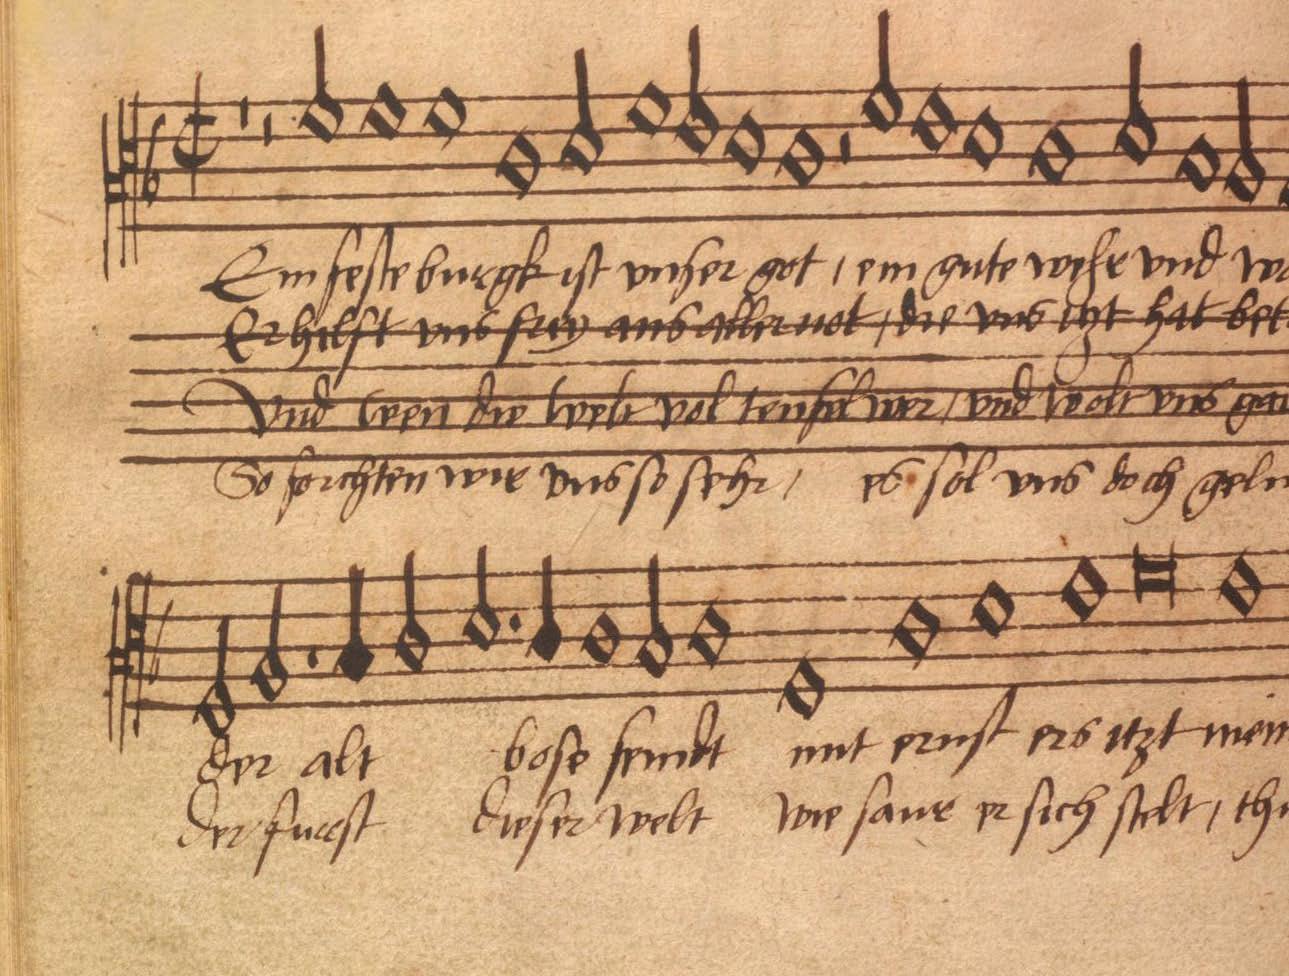 Ein feste burgk ist unser got, ein gute wehr und wa
Er hilft uns frey aus aller not, die uns itzt hat bet
Und wen die welt vol teufel wer, und wolt uns gar
So forchten wir uns so sehr, es sol uns doch gelin
der alt bose feindt mit ernst ers itzt mein
der furst dieser welt wie saur er sich stelt, thu